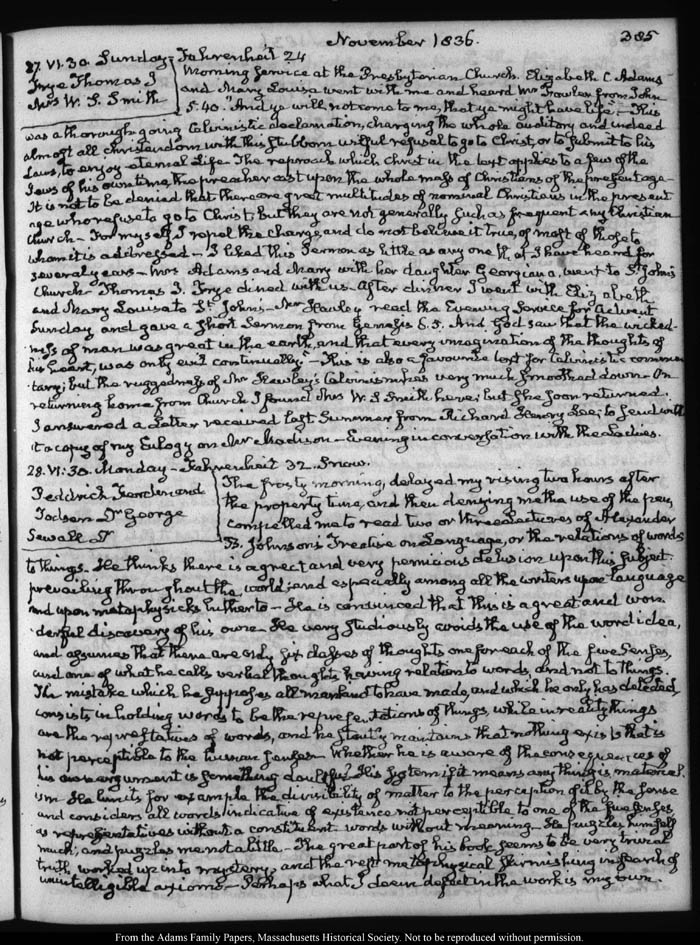 November 1836.
385
27. VI:30. Sunday - Fahrenheit 24
Frye Thomas J
Mrs W. S. Smith
Morning service at the Presbyterian Church. Elizabeth C. Adams
and Mary Louisa went with me and heard Mr Fowler from John
5. 40. "And ye will not come to me, that ye might have life" - This
was a thorough-going Calvinistic declamation, charging the whole auditory and indeed
almost all christendom with this stubborn wilful refusal to go to Christ, or to submit to his
Laws, to enjoy eternal Life. The reproach which Christ in the text applies to a few of the
Jews of his own time, the preacher cast upon the whole mass of Christians of the present age -
It is not to be denied that there are great multitudes of nominal Christians in the present
age who refuse to go to Christ; but they are not generally such as frequent any Christian
Church - For myself, I repel the charge, and do not believe it true, of most of those to
whom it is addressed - I liked this Sermon as little as any one that I have heard for
several years - Mrs Adams and Mary with her daughter Georgiana, went to St John's
Church - Thomas J. Frye dined with us - After dinner I went with Elizabeth
and Mary Louisa to St. John's - Mr Hawley read the Evening Service for Advent
Sunday and gave a short Sermon from Genesis 6. 5. And God saw that the wicked-
ness of man was great in the earth, and that every imagination of the thoughts of
his heart, was only evil continually" - This is also a favourite text for Calvinistic commen
tary; but the ruggedness of Mr Hawley's Calvinism is very much smoothed down - On
returning home from Church I found Mrs W. S Smith here; but she soon returned.
I answered a Letter received last Summer from Richard Henry Lee; to send with
it a copy of my Eulogy on Mr Madison - Evening in conversation with the Ladies.
28. VI:30. Monday - Fahrenheit 32. Snow.
George
Sewall Dr
The frosty morning, delayed my rising two hours after
the property time, and then denying me the use of the pen,
compelled me to read two or three Lectures of Alexander
B. Johnson's Treatise on Language, or the relations of words
to things - He thinks there is a great and very pernicious delusion upon this subject
prevailing throughout the world; and especially among all the writers upon language
and upon metaphysicks hitherto - He is convinced that this is a great and won
derful discovery of his own - He very studiously avoids the use of the word idea,
and assumes that there are only six classes of thoughts one for each of the five Senses,
and one of what he calls verbal thoughts having relation to words, and not to things.
The mistake which he supposes all mankind to have made, and which he only has detected,
consists in holding words to be the representations of things, while in reality things
are the representatives of words, and he stoutly maintains that nothing exists that is
not perceptible to the human senses - Whether he is aware of the consequences of
his own argument is something doubtful? His system if it means any thing is material.
ism - He limits for example the divisibility of matter to the perception of it by the sense
and considers all words indicative of existence not perceptible to one of the five senses
as representatives without a constituent words without meaning - He puzzles himself
much; and puzzles me not a little - The great part of his book seems to be very trivial
truth, worked up into mystery, and the rest metaphysical skirmishing in search of
unintelligible axioms - Perhaps what I deem defect in the work is my own.
From the Adams Family Papers, Massachusetts Historical Society. Not to be reproduced without permission.